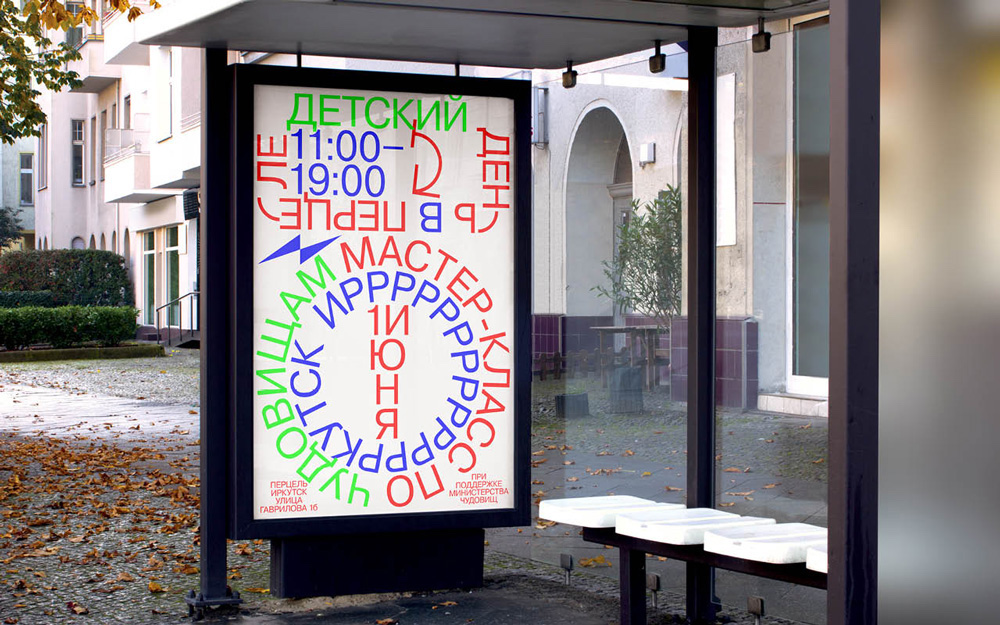 ДЕТСКИЙ
ДЕНЬ
В ПЕРЦЕЛЕ
11:00–
19:00
МАСТЕР-КЛАСС ПО ЧУДОВИЩАМ
ИРРРРРРРРРРРРРРРРРРКУТСК
1 ИЮНЯ
ПЕРЦЕЛЬ
ИРКУТСК
УЛИЦА
ГАВРИЛОВА 1б
ПРИ
ПОДДЕРЖКЕ
МИНИСТЕРСТВА
ЧУДОВИЩ